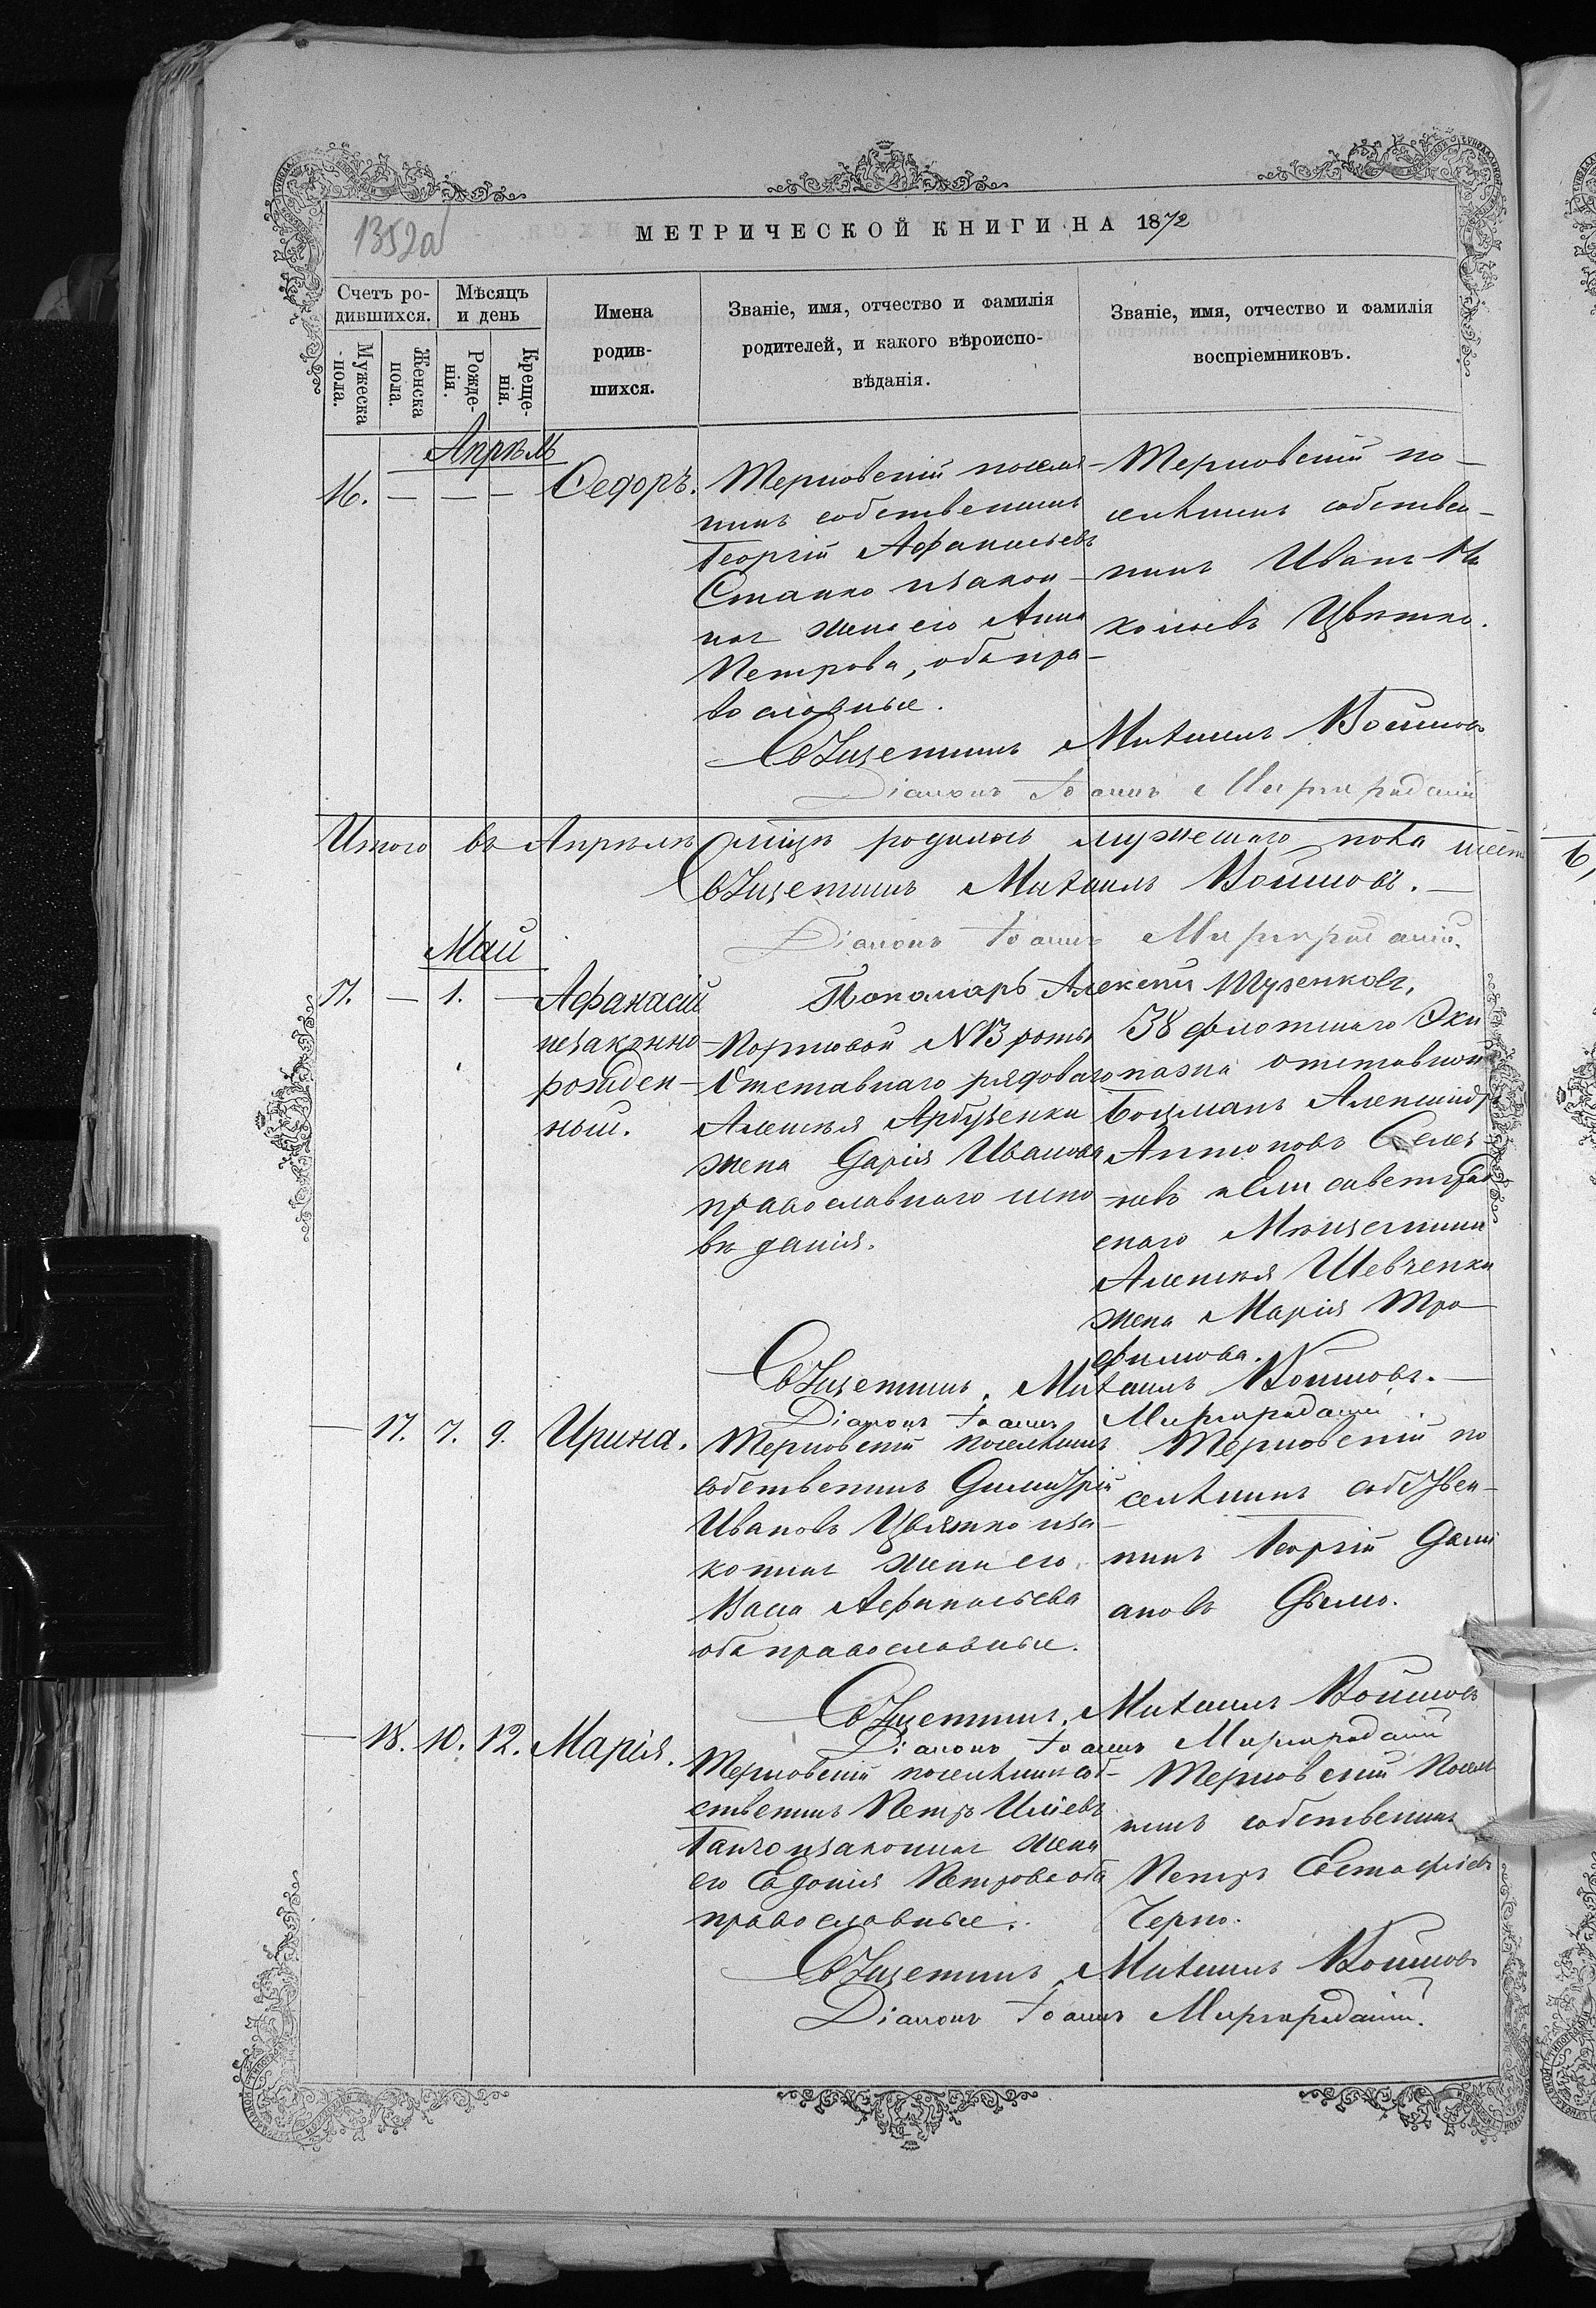 1352об
МЕТРИЧЕСКОЙ КНИГИ НА 1872
Счетъ ро-
дившихся.
Мѣсяцъ
и день
Имена
родив-
шихся.
Званіе, имя, отчество и фамилія
родителей, и какого вѣроиспо-
вѣданія.
Званіе, имя, отчество и фамилія
воспріемниковъ.
Мужеска
пола.
Женска
пола.
Рожде-
нія.
Креще-
нія.
Апрѣль
16. — — — Ѳедоръ.
Терновскій поселя-
нинъ собственникъ
Георгій Афанасьевъ
Станко изакон-
ная жена его Анна
Петрова, оба пра-
вославные.
Терновскій по-
селянинъ собствен-
никъ Иванъ Ни
колаевъ Цвятко.
Священникъ Михаилъ Войновъ
Діаконъ Іоаннъ
Итого въ Апрѣлѣ мѣсяцѣ родилось мужескаго пола
Священникъ Михаилъ Войновъ.
Діаконъ Іоаннъ
Май
17. — 1. — Афанасій
незаконно-
рожден-
ный.
Пономарь Алексѣй
Портовой №13 роты
Отставнаго рядоваго
Алексѣя Арбузенки
жена Дарія Иванова
православнаго испо
вѣданія.
38 флотскаго Эки
пажа отставной
Боцманъ Александръ
Антоновъ
новъ и Елисаветград
скаго Мѣщанина
Алексѣя Шевченки
жена Марія Тро-
фимова.
Священникъ Михаилъ Войновъ.
Діаконъ Іоаннъ
— 17. 7. 9. Ирина.
Терновскій поселянинъ
собственникъ Димитрій
Ивановъ Цвятко иза-
конная жена его
Васа Афанасьева
оба православные.
Терновскій по
селянинъ собствен-
никъ Георгій Дами
ановъ
Священникъ Михаилъ Войновъ
Діаконъ Іоаннъ
— 18. 10. 12. Марія.
Терновскій поселянинъ соб-
ственникъ Петръ Иліевъ
Ганчо изаконная жена
его Евдокія Петрова оба
православные.
Терновскій Поселя
нинъ собственникъ
Петръ Евстафіевъ
Черно.
Священникъ Михаилъ Войновъ
Діаконъ Іоаннъ